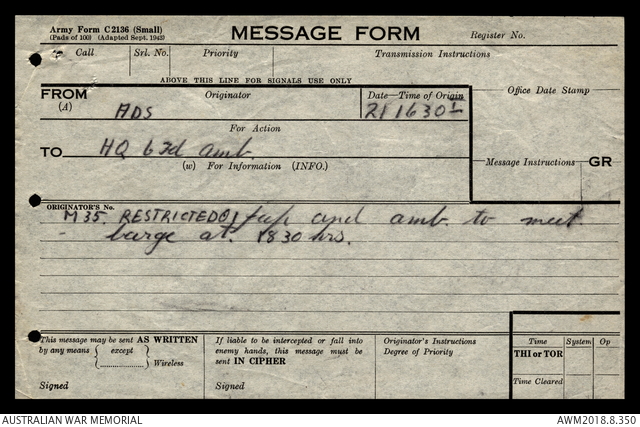 Army Form C2136 (Small)
(Pads of 100) (Adapted Sept. 1943)
MESSAGE FORM
Register No.
Call
Srl. No.
Priority
Transmission Instructions
ABOVE THIS LINE FOR SIGNALS USE ONLY
FROM
(A)
Originator
Date—Time of Origin
Office Date Stamp
ADS
211630
For Action
TO
HQ 6 Fd amb.
(w) For Information (INFO.)
Message Instructions
GR
ORIGINATOR'S No.
M35. RESTRICTED and amb. to meet
barge at. 1830 hrs.
This message may be sent AS WRITTEN
by any means
except
Wireless
If liable to be intercepted or fall into
enemy hands, this message must be
sent IN CIPHER
Originator's Instructions
Degree of Priority
Time
System
Op
THI or TOR
Time Cleared
Signed
Signed
AUSTRALIAN WAR MEMORIAL
AWM2018.8.350